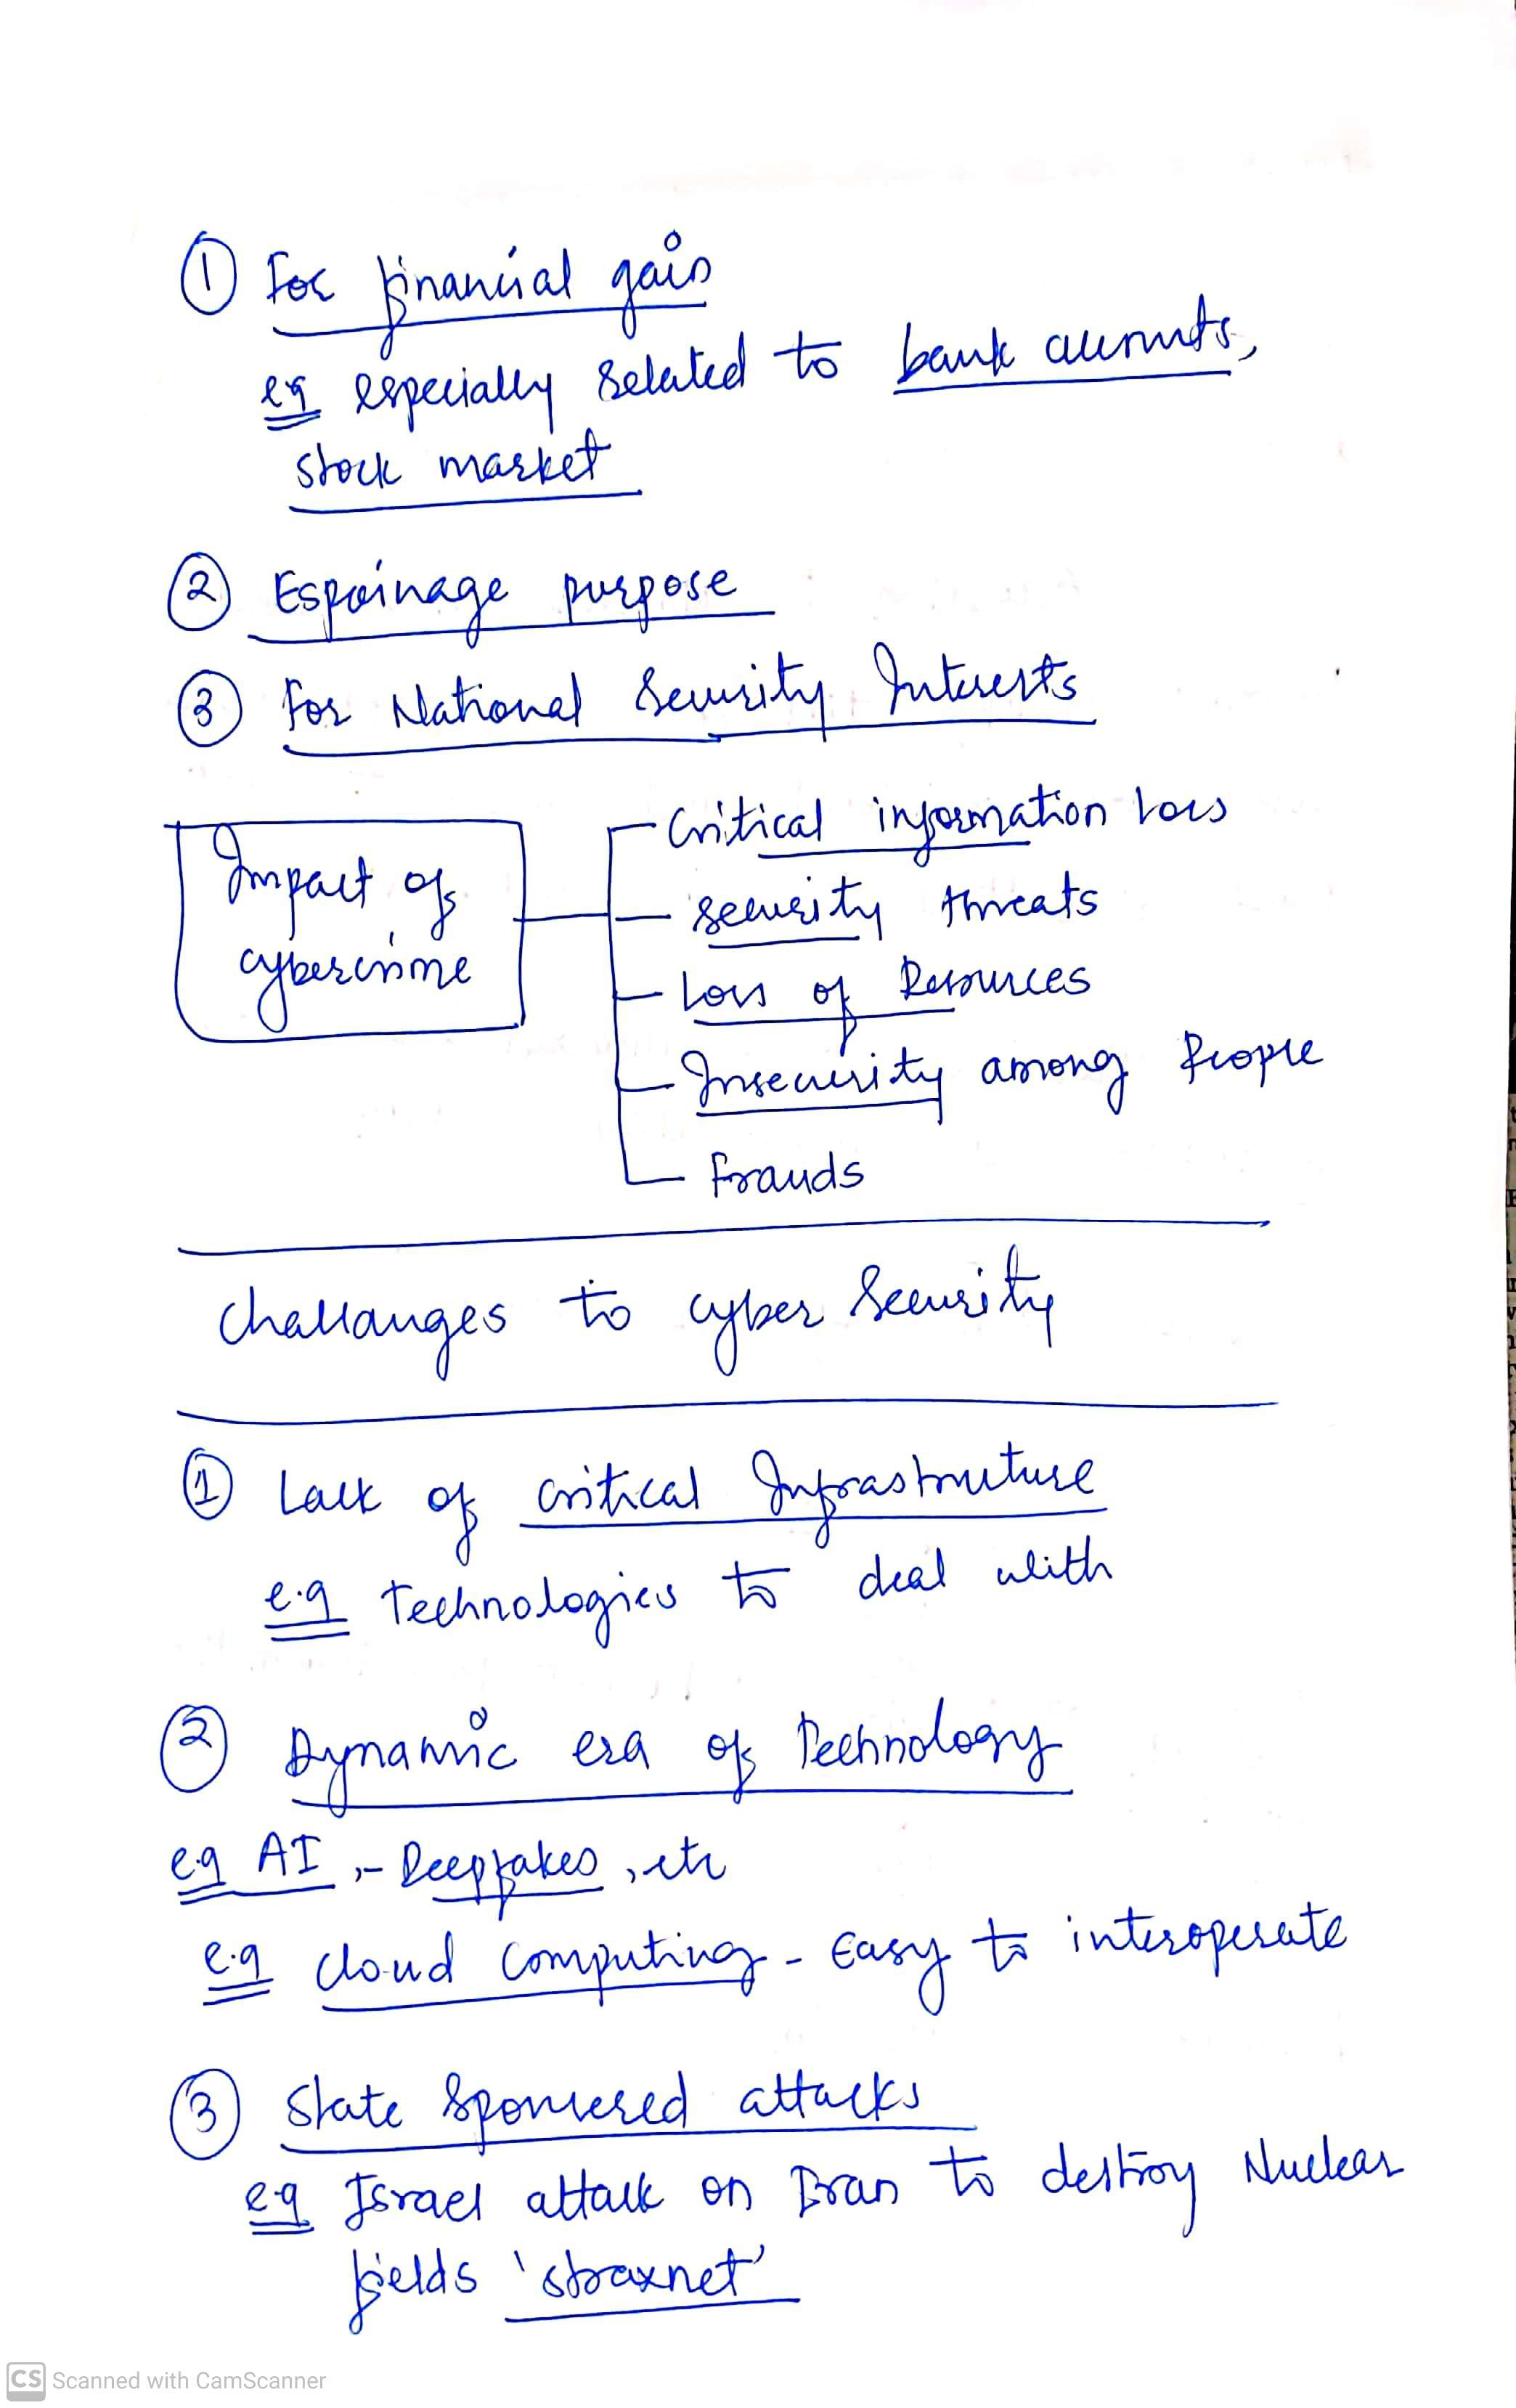 ① For financial gain
eg especially related to bank accounts,
stock market
② Espoinage purpose
③ For National Security Interests
Impact of
cybercrime
- Critical information loss
- security threats
- Loss of Resources
- Insecurity among People
- Frauds
Challanges to cyber Security
① Lack of critical Infrastructure
e.g Technologies to deal with
② Dynamic era of Technology
e.g AI,- Deepfakes, etc
e.g cloud computing - Easy to interoperate
③ State Sponsered attacks
eg Israel attack on Iran to destroy Nuclear
fields 'straxnet'
CS Scanned with CamScanner